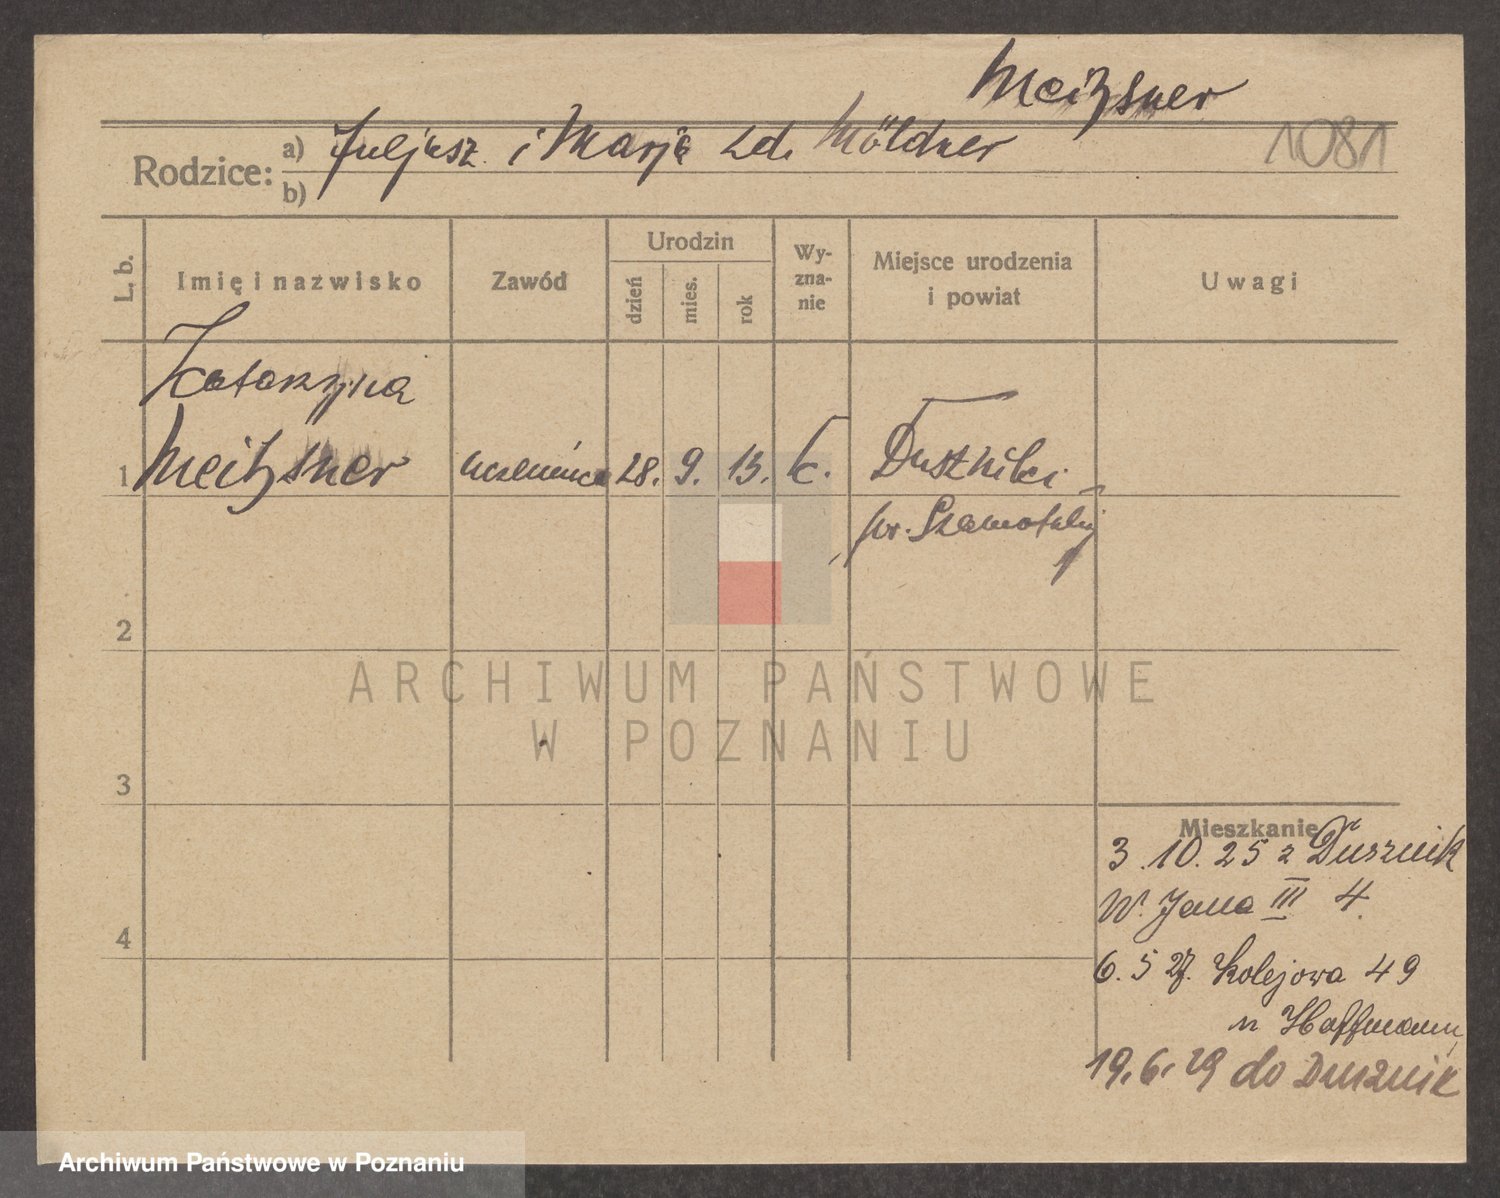 Meitzsner
1081
Rodzice: a) Juljusz i Marja z d. Möldner
b)
L. b.
Imię i nazwisko
Zawód
Urodzin
dzień
mies.
rok
Wy-
zna-
nie
Miejsce urodzenia
i powiat
Uwagi
Katarzyna
1 Meitzsner uczennica 28. 9. 13. k. Duszniki
pw. Szamotuły
2
3
4
Mieszkanie
3.10.25 z Dusznik
W. Jana III 4.
6.5 27. Kolejowa 49
u Hoffmann
19.6.29 do Dusznik
ARCHIWUM PAŃSTWOWE
W POZNANIU
Archiwum Państwowe w Poznaniu